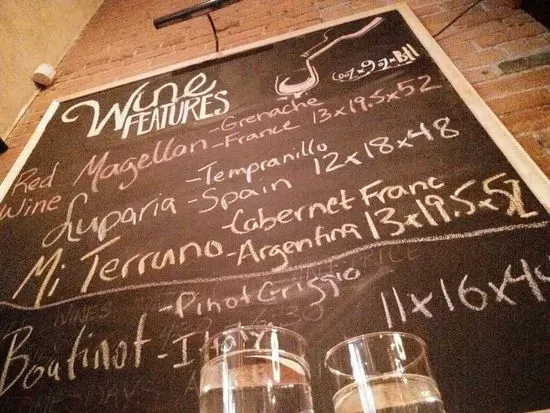 Wine
FEATURES
6oz x 9oz x Btl
Red Wine
Magellan - Grenache
- France 13 x 19.5 x 52
Luparia - Tempranillo
- Spain 12 x 18 x 48
Mi Terruno - Cabernet Franc
- Argentina 13 x 19.5 x 52
Boutinot - Pinot Griggio
- Italy 11 x 16 x 44
WINES